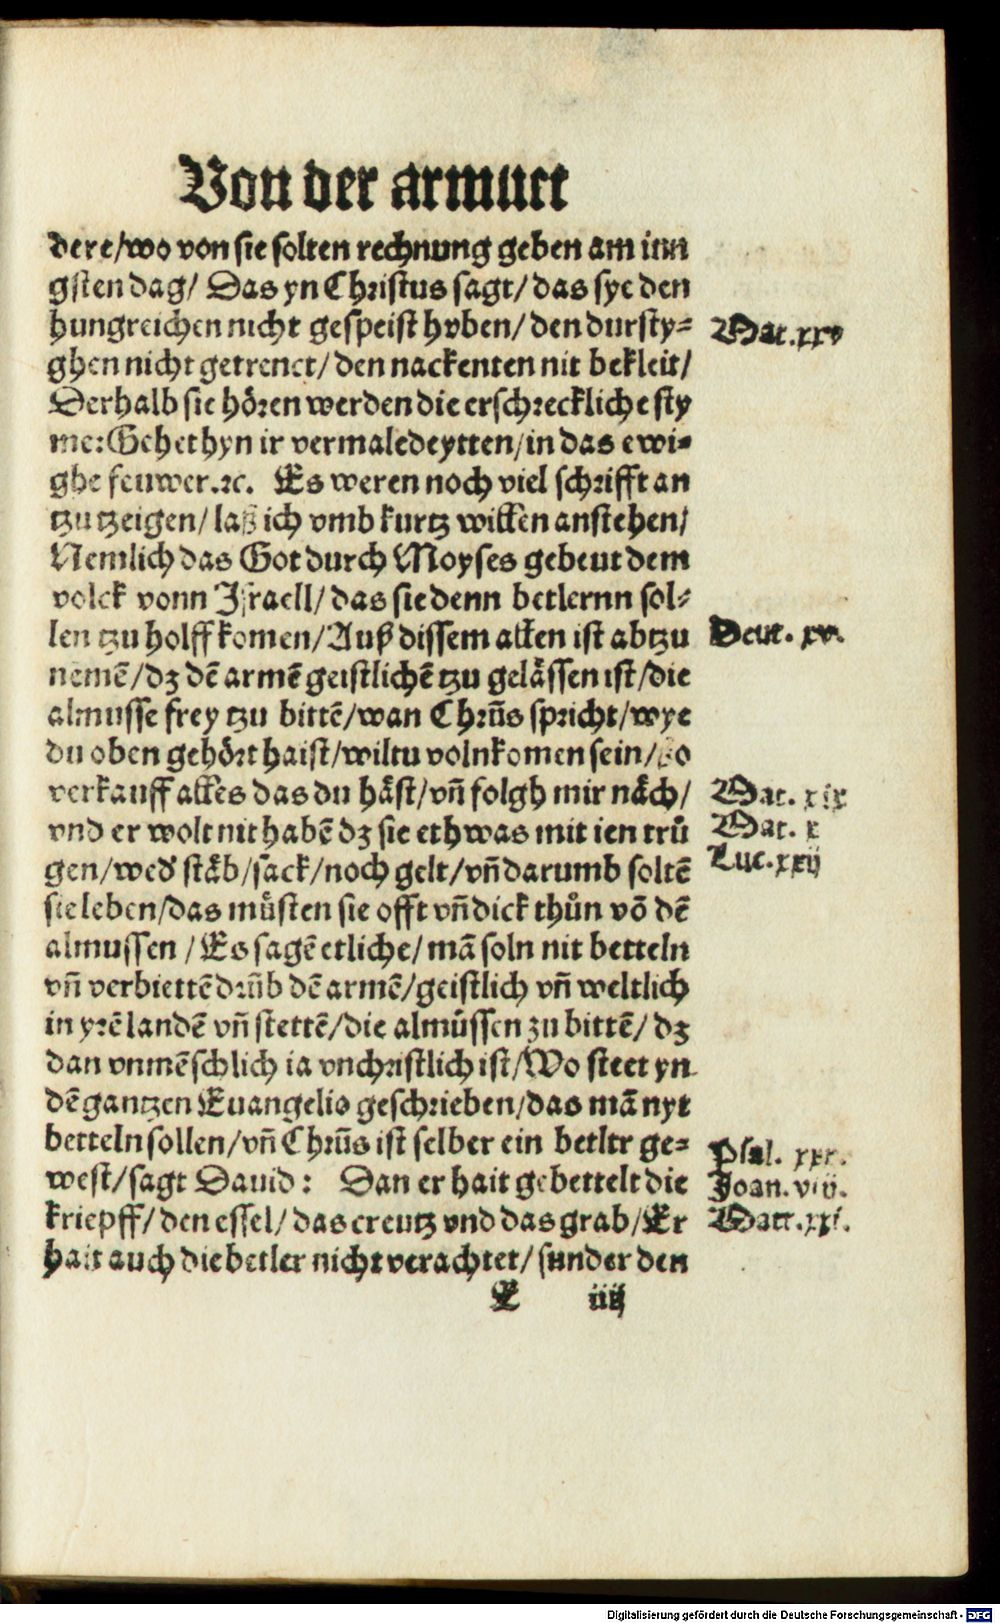 Von der armutt
dere/wo von sie solten rechnung geben am iun
gsten dag/ Das yn Christus sagt/das sye den
hungreichen nicht gespeist hvben/den dursty-
Mat.xxv
ghen nicht getrenct/den nackenten nit bekleit/
Derhalb sie hören werden die erschreckliche sty
me:Gehet hyn ir vermaledeytten/in das ewi-
ghe feuwer.ꝛc. Es weren noch viel schrifft an
tzu tzeigen/laß ich vmb kurtz willen anstehen/
Nemlich das Got durch Moyses gebeut dem
volck vonn Israell/das sie denn betlernn sol-
len tzu holff komen/Auß dissem allen ist abtzu
Deut. xv.
nemē/dz dē armē geistlichē tzu gelässen ist/die
almusse frey tzu bittē/wan Chrūs spricht/wye
du oben gehört haist/wiltu volnkomen sein/so
verkauff alles das du häst/vn̄ folgh mir näch/
Mat. xix
vnd er wolt nit habē dz sie ethwas mit ien trů
Mat. x
gen/wed' stäb/sack/noch gelt/vn̄ darumb soltē
Luc.xxij
sie leben/das müsten sie offt vn̄ dick thůn vō dē
almussen /Es sagē etliche/mā soln nit betteln
vn̄ verbiettē drūb dē armē/geistlich vn̄ weltlich
in yrē landē vn̄ stettē/die almüssen zu bittē/dz
dan vnmēschlich ia vnchristlich ist/Wo steet yn
dē gantzen Euangelio geschrieben/das mā nyt
betteln sollen/vn̄ Chrūs ist selber ein betltr ge-
Psal. xxx.
west/sagt Dauid: Dan er hait gebettelt die
Joan. viij.
kriepff/den essel/das creutz vnd das grab/Er
Matt.xxi.
hait auch die betler nicht verachtet/sunder den
E iiij
Digitalisierung gefördert durch die Deutsche Forschungsgemeinschaft - DFG